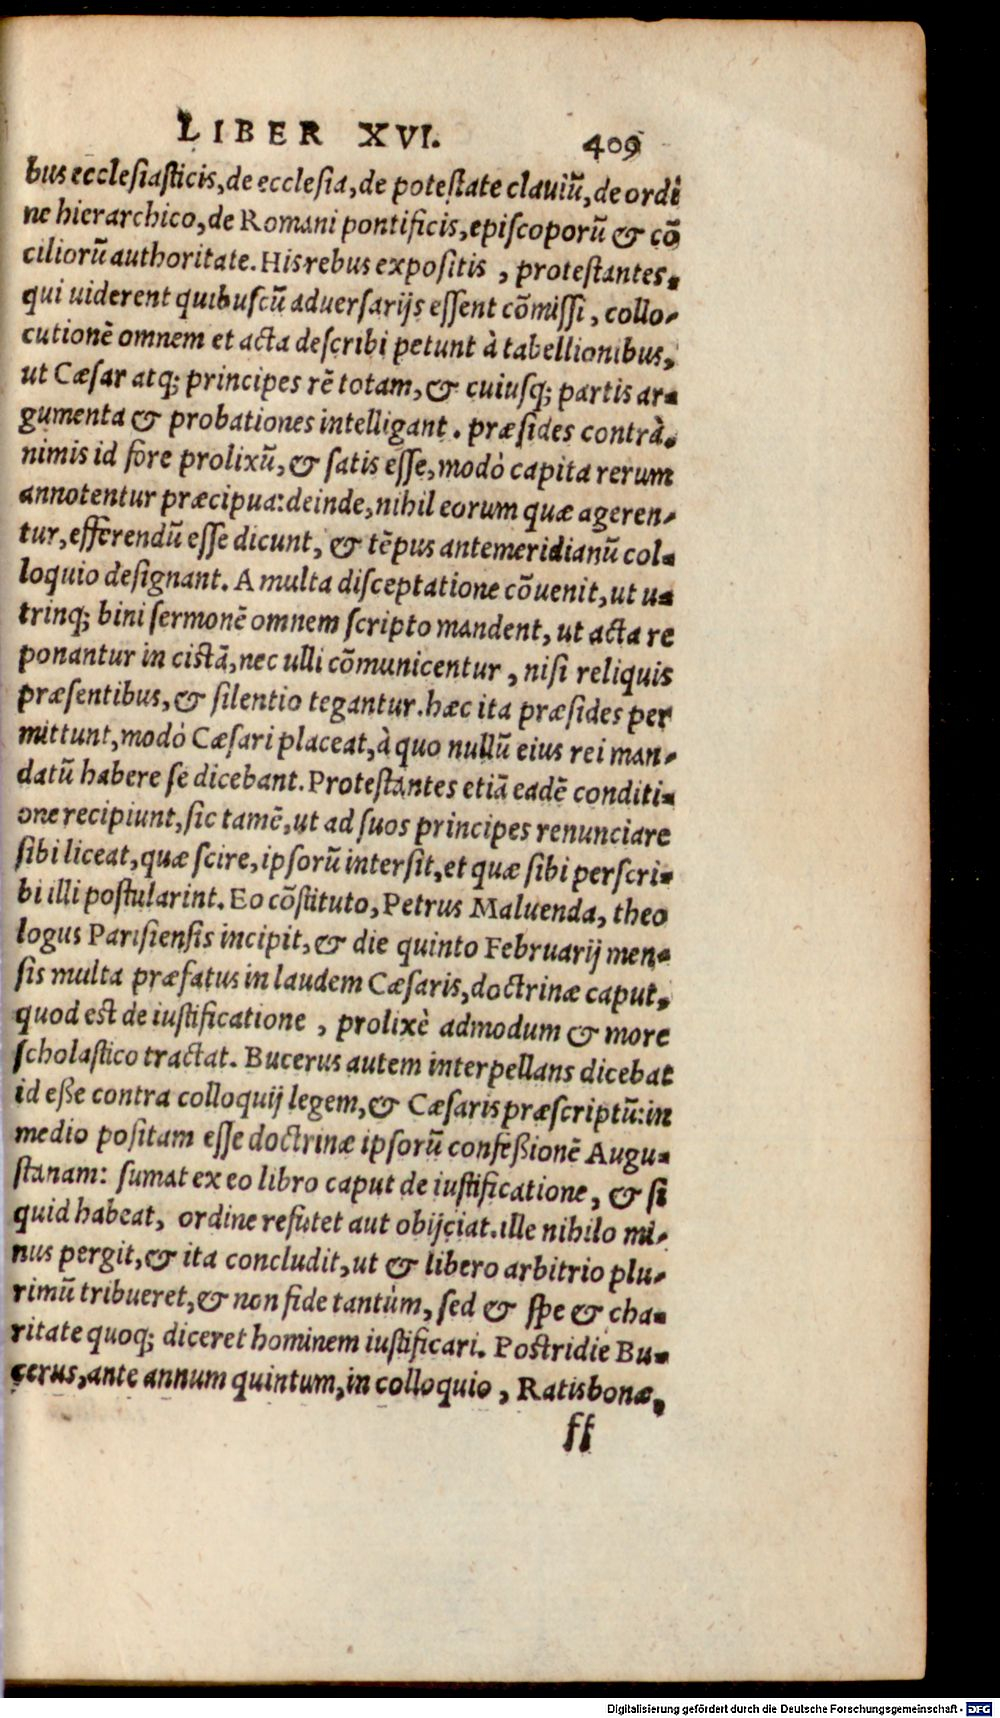 LIBER XVI. 409
bus ecclesiasticis, de ecclesia, de potestate clauiū, de ordi
ne hierarchico, de Romani pontificis, episcoporū & cō
ciliorū authoritate. His rebus expositis, protestantes,
qui uiderent quibuscū aduersarijs essent cōmissi, collo-
cutionē omnem et acta describi petunt à tabellionibus,
ut Cæsar atq; principes rē totam, & cuiusq; partis ar-
gumenta & probationes intelligant. præsides contrà,
nimis id fore prolixū, & satis esse, modò capita rerum
annotentur præcipua: deinde, nihil eorum quæ ageren-
tur, efferendū esse dicunt, & tēpus antemeridianū col-
loquio designant. A multa disceptatione cōuenit, ut u-
trinq; bini sermonē omnem scripto mandent, ut acta re
ponantur in cistā, nec ulli cōmunicentur, nisi reliquis
præsentibus, & silentio tegantur. hæc ita præsides per
mittunt, modò Cæsari placeat, à quo nullū eius rei man-
datū habere se dicebant. Protestantes etiā eadē conditi-
one recipiunt, sic tamē, ut ad suos principes renunciare
sibi liceat, quæ scire, ipsorū intersit, et quæ sibi perscri-
bi illi postularint. Eo cōstituto, Petrus Maluenda, theo
logus Parisiensis incipit, & die quinto Februarij men-
sis multa præfatus in laudem Cæsaris, doctrinæ caput,
quod est de iustificatione, prolixè admodum & more
scholastico tractat. Bucerus autem interpellans dicebat
id eße contra colloquij legem, & Cæsaris præscriptū: in
medio positam esse doctrinæ ipsorū confeßionē Augu-
stanam: sumat ex eo libro caput de iustificatione, & si
quid habeat, ordine refutet aut obijciat. ille nihilo mi-
nus pergit, & ita concludit, ut & libero arbitrio plu-
rimū tribueret, & non fide tantùm, sed & spe & cha-
ritate quoq; diceret hominem iustificari. Postridie Bu-
cerus, ante annum quintum, in colloquio, Ratisbonæ,
ff
Digitalisierung gefördert durch die Deutsche Forschungsgemeinschaft - DFG